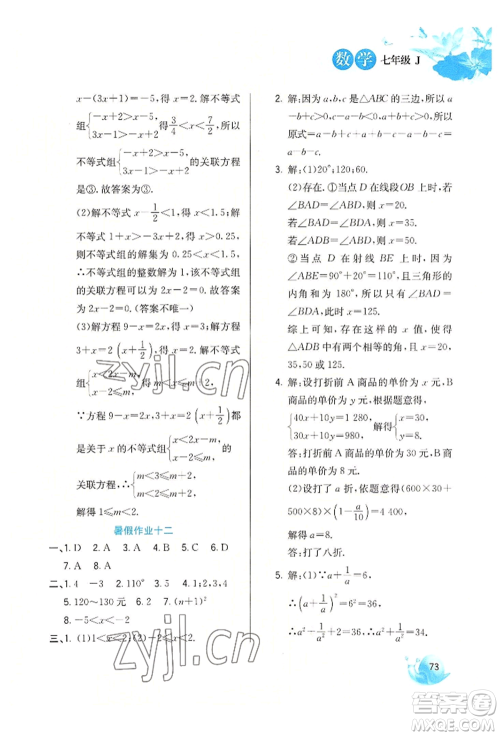 数学 七年级 J
x-(3x+1)=-5,得 x=2.解不等式
组{-x+2>x-5, 3x-1>-x+2得 3/4<x<7/2,所以
不等式组{-x+2>x-5, 3x-1>-x+2
的关联方程
是③.故答案为③.
(2)解不等式 x-1/2<1,得 x<1.5,
则不等式组的解集为 0.25<x<1.5.
∴不等式组的整数解为 1.则该不等
式组的关联方程为 2x-2=0.故答案
为 2x-2=0.(答案不唯一)
(3)解方程 9-x=2x,得 x=3.解方程
3+x=2(x+1/2),得 x=2.解不等式
组{x<2x-m, x-2≤m得 m<x≤m+2.
∵方程 9-x=2x,3+x=2(x+1/2)
都是关于 x 的不等式组{x<2x-m, x-2≤m的
关联方程,∴{m<3≤m+2, m<2≤m+2.
解得 1≤m<2.
暑假作业十二
一、1. D 2. A 3. A 4. B 5. C 6. D
7. A
二、1. 4 -3 2. 110° 3. 1 4. 1,2,3,4
5. 120~130 元 6. (n+1)²
三、1. (1)1<x≤2(2)-2≤x<2
2. 解:因为 a,b,c 是△ABC 的三边,所以
a-b-c<0,b-c+a>0,所以
原式=-a+b+c+b-c+a+a-b+c=
a-b-c.
3. 解:(1)20°;120;60.
(2)存在.①当点 D 在线段 OB 上时,
若∠BAD=∠ABD,则 x=20.
若∠BAD=∠BDA,则 x=35.
若∠ADB=∠ABD,则 x=50.
②当点 D 在射线 BE 上时,因为
∠ABE=90°+20°=110°,且三角形的
内角和为 180°,所以只有∠BAD=
∠BDA,此时 x=125.
综上可知,存在这样的 x 值,使得
△ADB 中有两个相等的角,且 x=20,
35,50 或 125.
4. 解:设打折前 A 商品的单价为 x 元,B
商品的单价为 y 元,根据题意得
{40x+10y=1 280, 30x+10y=980.解得{x=30, y=8.
答:打折前 A 商品的单价为 30 元,B
商品的单价为 8 元.
(2)设打了 a 折,依题意得(600×30+
500×8)×(1-a/10)=3600+800,解
得 a=8.
答:打八折.
5. 解:∵(a+1/a)²=6²=36,
∴a²+1/a²+2=36,
∴a²+1/a²=34.
73
zyjl.cn
zyjl.cn